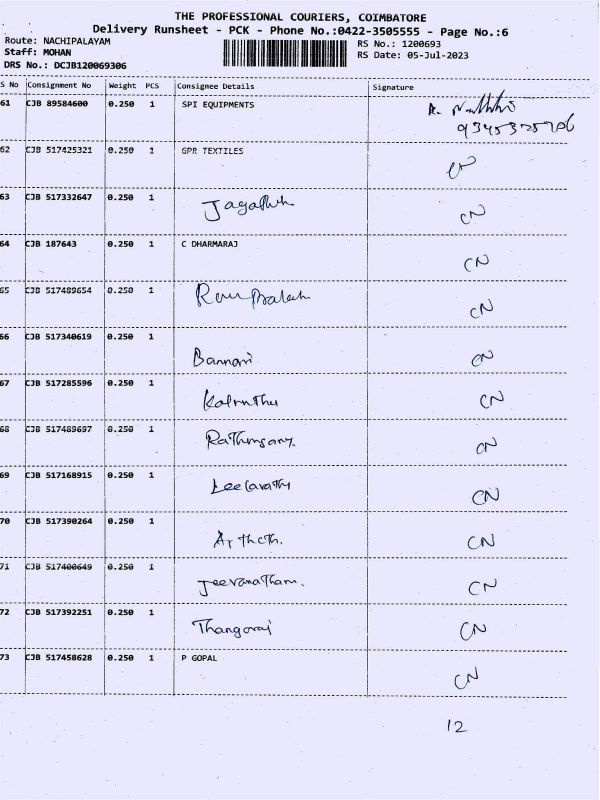 THE PROFESSIONAL COURIERS, COIMBATORE
Delivery Runsheet - PCK - Phone No.:0422-3505555 - Page No.:6
Route: NACHIPALAYAM RS No.: 1200693
Staff: MOHAN RS Date: 05-Jul-2023
DRS No.: DCJB120069306
S No Consignment No Weight PCS Consignee Details Signature
61 CJB 89584600 0.250 1 SPI EQUIPMENTS
62 CJB 517425321 0.250 1 GPR TEXTILES CN
63 CJB 517332647 0.250 1 CN
64 CJB 187643 0.250 1 C DHARMARAJ CN
65 CJB 517489654 0.250 1 CN
66 CJB 517340619 0.250 1 Bannari CN
67 CJB 517285596 0.250 1 CN
68 CJB 517489697 0.250 1 CN
69 CJB 517168915 0.250 1 Leelavathy CN
70 CJB 517390264 0.250 1 CN
71 CJB 517400649 0.250 1 CN
72 CJB 517392251 0.250 1 Thangaraj CN
73 CJB 517458628 0.250 1 P GOPAL CN
12